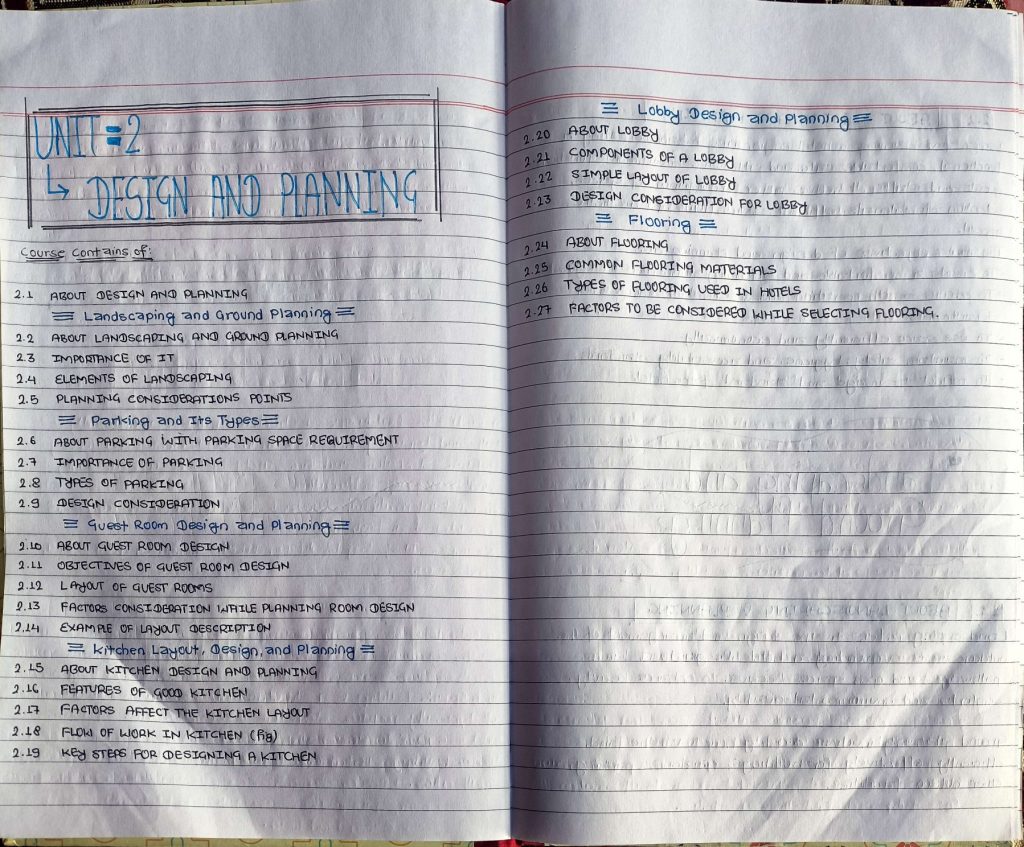 UNIT = 2
↳ DESIGN AND PLANNING
Course Contains of:
2.1 ABOUT DESIGN AND PLANNING
Landscaping and Ground Planning
2.2 ABOUT LANDSCAPING AND GROUND PLANNING
2.3 IMPORTANCE OF IT
2.4 ELEMENTS OF LANDSCAPING
2.5 PLANNING CONSIDERATIONS POINTS
Parking and Its Types
2.6 ABOUT PARKING WITH PARKING SPACE REQUIREMENT
2.7 IMPORTANCE OF PARKING
2.8 TYPES OF PARKING
2.9 DESIGN CONSIDERATION
Guest Room Design and Planning
2.10 ABOUT GUEST ROOM DESIGN
2.11 OBJECTIVES OF GUEST ROOM DESIGN
2.12 LAYOUT OF GUEST ROOMS
2.13 FACTORS CONSIDERATION WHILE PLANNING ROOM DESIGN
2.14 EXAMPLE OF LAYOUT DESCRIPTION
Kitchen Layout, Design, and Planning
2.15 ABOUT KITCHEN DESIGN AND PLANNING
2.16 FEATURES OF GOOD KITCHEN
2.17 FACTORS AFFECT THE KITCHEN LAYOUT
2.18 FLOW OF WORK IN KITCHEN (fig)
2.19 KEY STEPS FOR DESIGNING A KITCHEN
Lobby Design and Planning
2.20 ABOUT LOBBY
2.21 COMPONENTS OF A LOBBY
2.22 SIMPLE LAYOUT OF LOBBY
2.23 DESIGN CONSIDERATION FOR LOBBY
Flooring
2.24 ABOUT FLOORING
2.25 COMMON FLOORING MATERIALS
2.26 TYPES OF FLOORING USED IN HOTELS
2.27 FACTORS TO BE CONSIDERED WHILE SELECTING FLOORING.